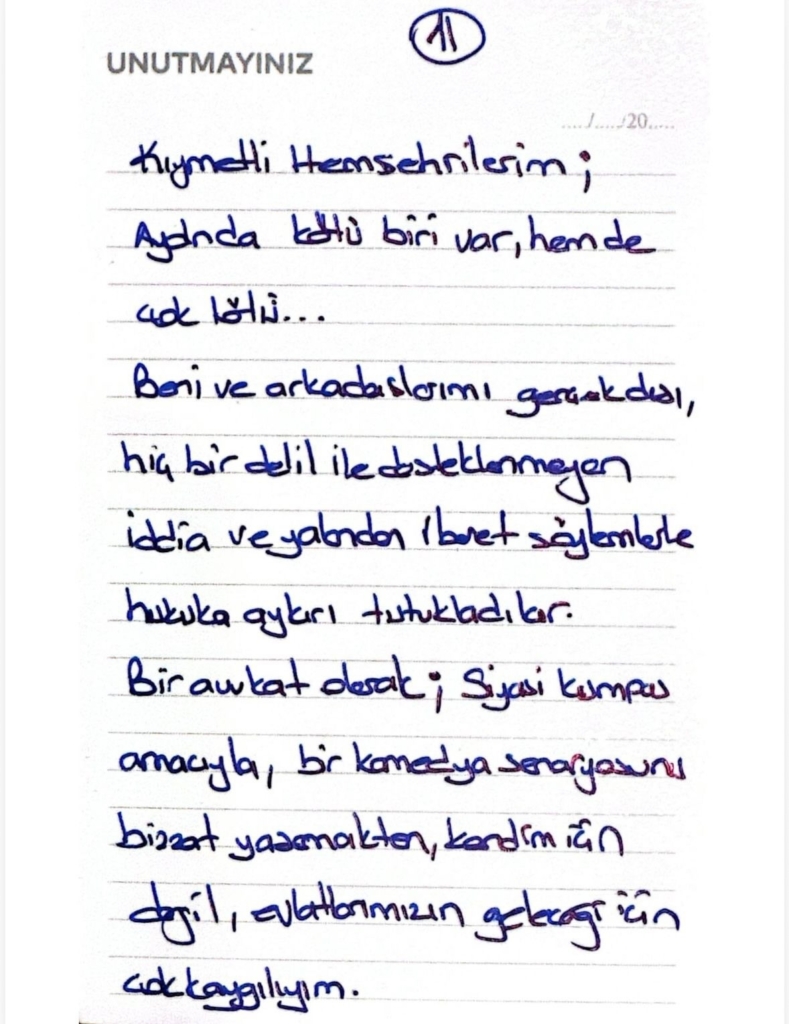 11
UNUTMAYINIZ
..../..../20.....
Kıymetli Hemşehrilerim;
Aydında kötü biri var, hem de
çok kötü...
Beni ve arkadaşlarımı gerçek dışı,
hiç bir delil ile desteklenmeyen
iddia ve yalandan ibaret söylemlerle
hukuka aykırı tutukladılar.
Bir avukat olarak; Siyasi kumpas
amacıyla, bir komedya senaryosunu
bizzat yaşamaktan, kendim için
değil, evlatlarımızın geleceği için
çok kaygılıyım.